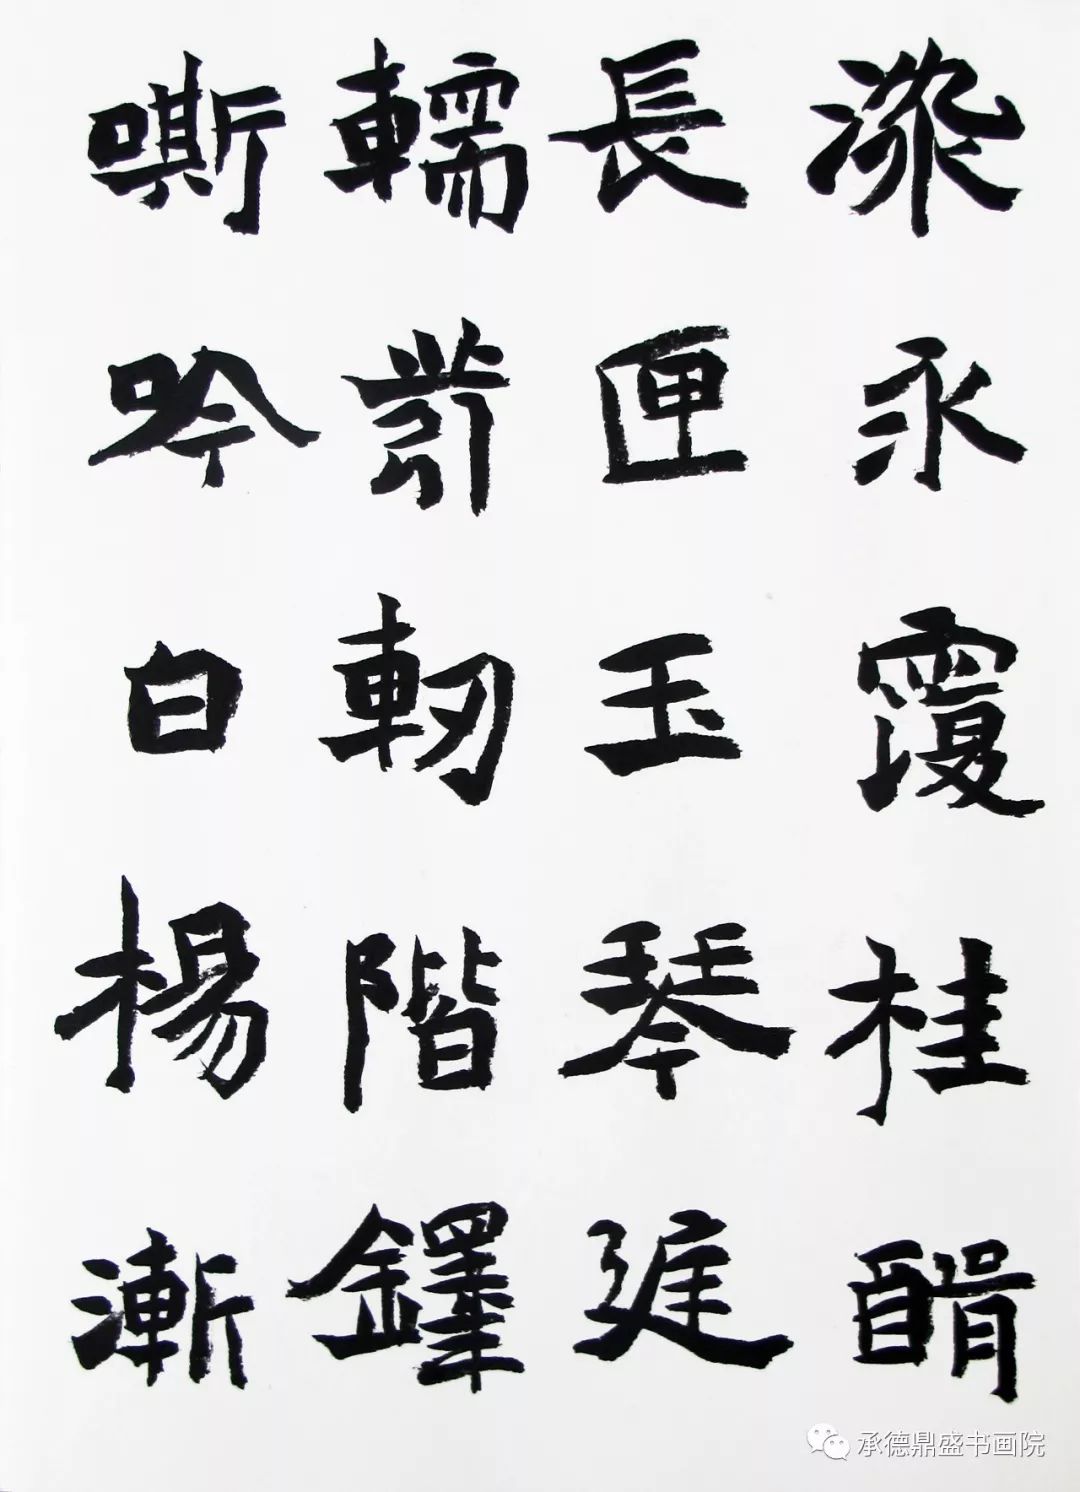 永 桂 醑
長匣玉琴
轜 軔階鐸
嘶吟白楊漸
承德鼎盛书画院